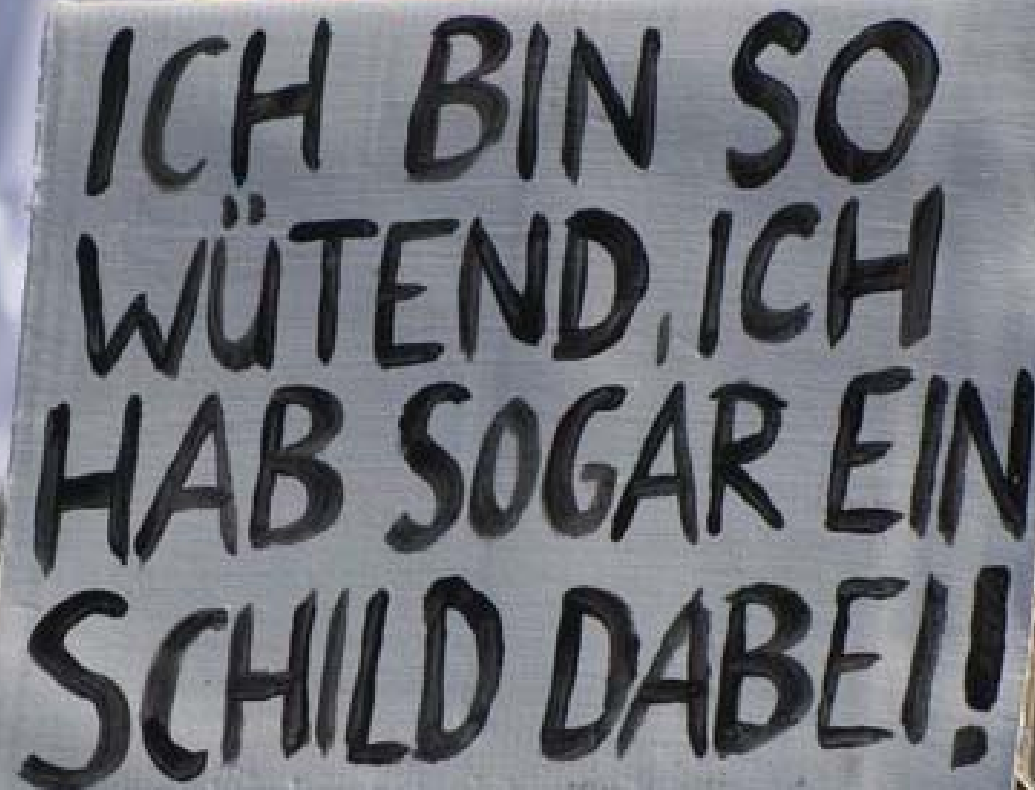 ICH BIN SO
WÜTEND, ICH
HAB SOGAR EIN
SCHILD DABEI!